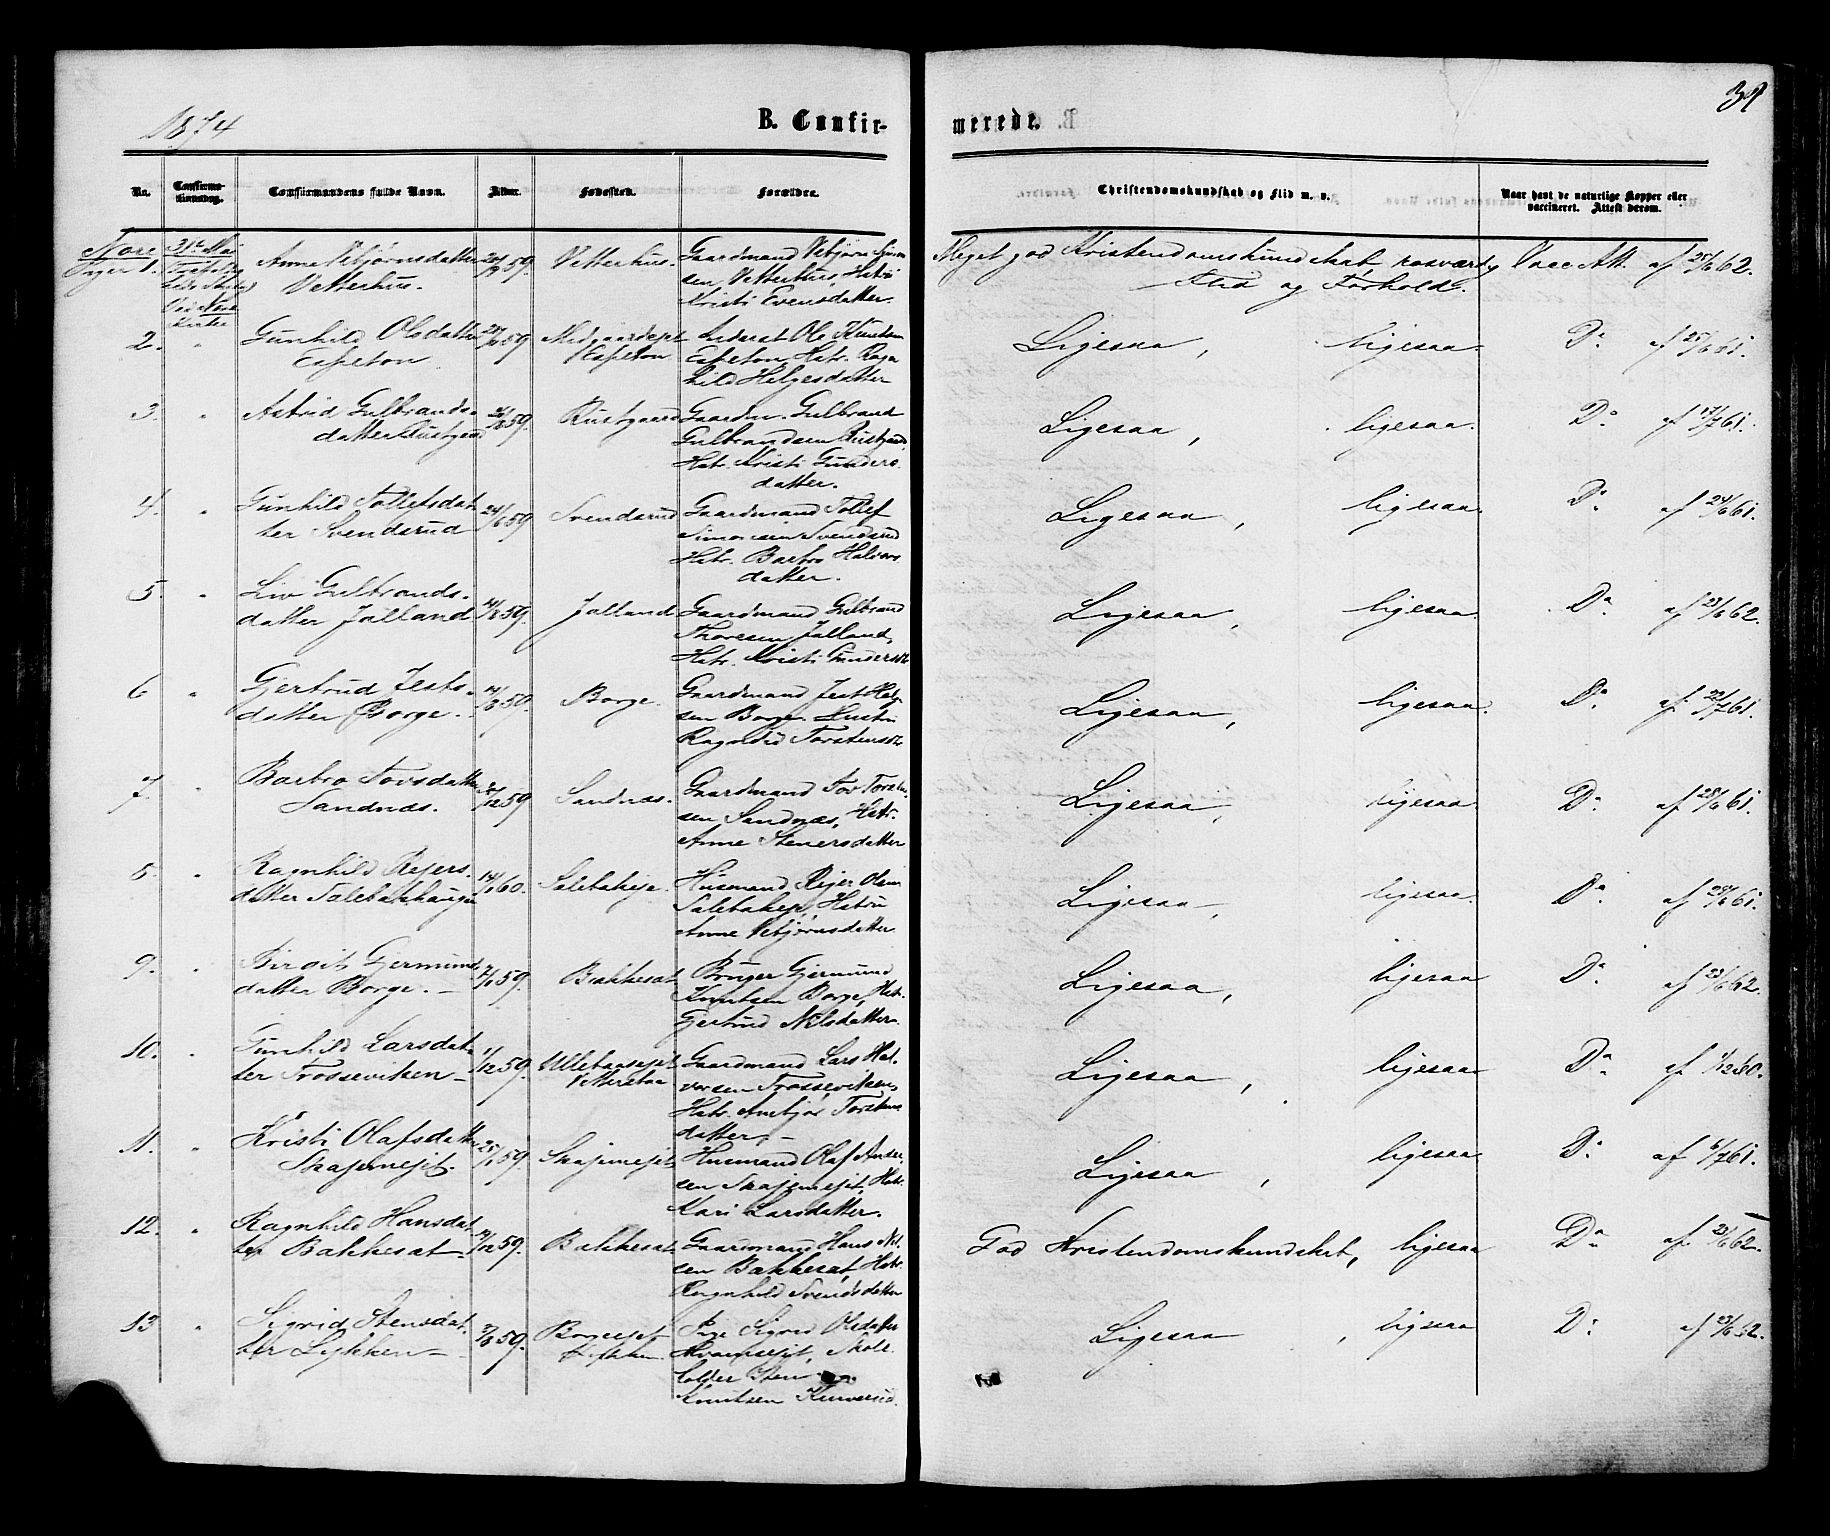 1874
B. Confirmerede.
39
No.
Confirmationsdag.
Confirmandens fulde Navn.
Alder.
Fødested.
Forældre.
Christendomskundskab og Flid m. v.
Naar havt de naturlige Kopper eller
vaccineret. Attest derom.
Nore
Piger 1.
31te Mai
Ved Nore
Kirke
Anne Vebjørnsdatter
Vetterhus.
59.
Vetterhus.
Gaardmand Vebjørn Simon
sen Vetterhus, Hstrü
Kristi Evensdatter.
Meget god Kristendomskundskab rosværdig
Flid og Forhold.
Vacc. Att. af 25/6 62.
2.
"
Gunhild Olsdatter
Espeton
59.
Medgaardsejet
Espeton
Inderst Ole Knutsen
Espeton, Hstr. Ragn
hild Helgesdatter
Ligesaa, ligesaa.
Do af 25/6 61.
3.
"
Astrid Gulbrands-
datter Rustgaard
59.
Rustgaard
Gaardm. Gulbrand
Gulbrandsen Rustgaard,
Hstr. Kristi Gunders
datter.
Ligesaa, ligesaa.
Do af 17/7 61.
4.
"
Gunhild Tollefsdat
ter Svendsrud
24/6 59.
Svendsrud
Gaardmand Tollef
Simonsen Svendsrud
Hstr. Barbro Halvors
datter.
Ligesaa, ligesaa.
Do af 24/6 61.
5.
"
Liv Gulbrands-
datter Jølland
59.
Jølland
Gaardmand Gulbrand
Thoresen Jølland,
Hstr. Kristi Gundersdr
Ligesaa, ligesaa.
Do af 23/6 62.
6
"
Gjertrud Jests-
datter Borge.
59.
Borge.
Gaardmand Jest Helg
sen Borge. Hustru
Ragndid Torstensdr
Ligesaa, ligesaa.
Do af 22/7 61.
7.
"
Barbro Tovsdatter
Sandnæs.
/12 59
Sandnæs.
Gaardmand Tov Torsten
sen Sandnæs, Hstr.
Anne Stenersdatter
Ligesaa, ligesaa.
Do af 28/6 61.
8.
"
Ragnhild Rejers-
datter Salebakhaugen
14/1 60.
Salebakeje.
Husmand Rejer Olsen
Salebakeje, Hstrü
Anne Vebjørnsdatter.
Ligesaa, ligesaa.
Do af 28/6 61.
9.
"
Birgit Gjermunds
datter Borge. -
59.
Bakkesat
Bruger Gjermund
Knutsen Borge, Hstr.
Gjertrud Nilsdatter.
Ligesaa, ligesaa
Do af 23/6 62.
10.
"
Gunhild Larsdat
ter Trosseviken -
1/12 59.
Gaardmand Lars Hal-
vorsen Trosseviken,
Hstr. Ambjør Torstens
datter. -
Ligesaa, ligesaa
Do af 1/12 60.
11.
"
Kristi Olafsdatter
Skajemejet.
59.
Skajemejet
Husmand Olaf Ander
sen Skajemejet, Hstr.
Kari Larsdatter.
Ligesaa, ligesaa
Do af 6/7 61.
12.
"
Ragnhild Hansdat
ter Bakkesat
/12 59.
Bakkesat
Gaardmand Hans Nil
sen Bakkesat, Hstr.
Ragnhild Svendsdatter
God Kristendomskundskab, ligesaa
Do af 23/6 62.
13
"
Sigrid Stensdat
ter Lykken -
59.
Borgeejet
Lykken
Pige Sigrid Olsdatter
Skole
holder Sten
Knutsen Kirversrud.
Ligesaa, ligesaa
Do af 23/6 62.